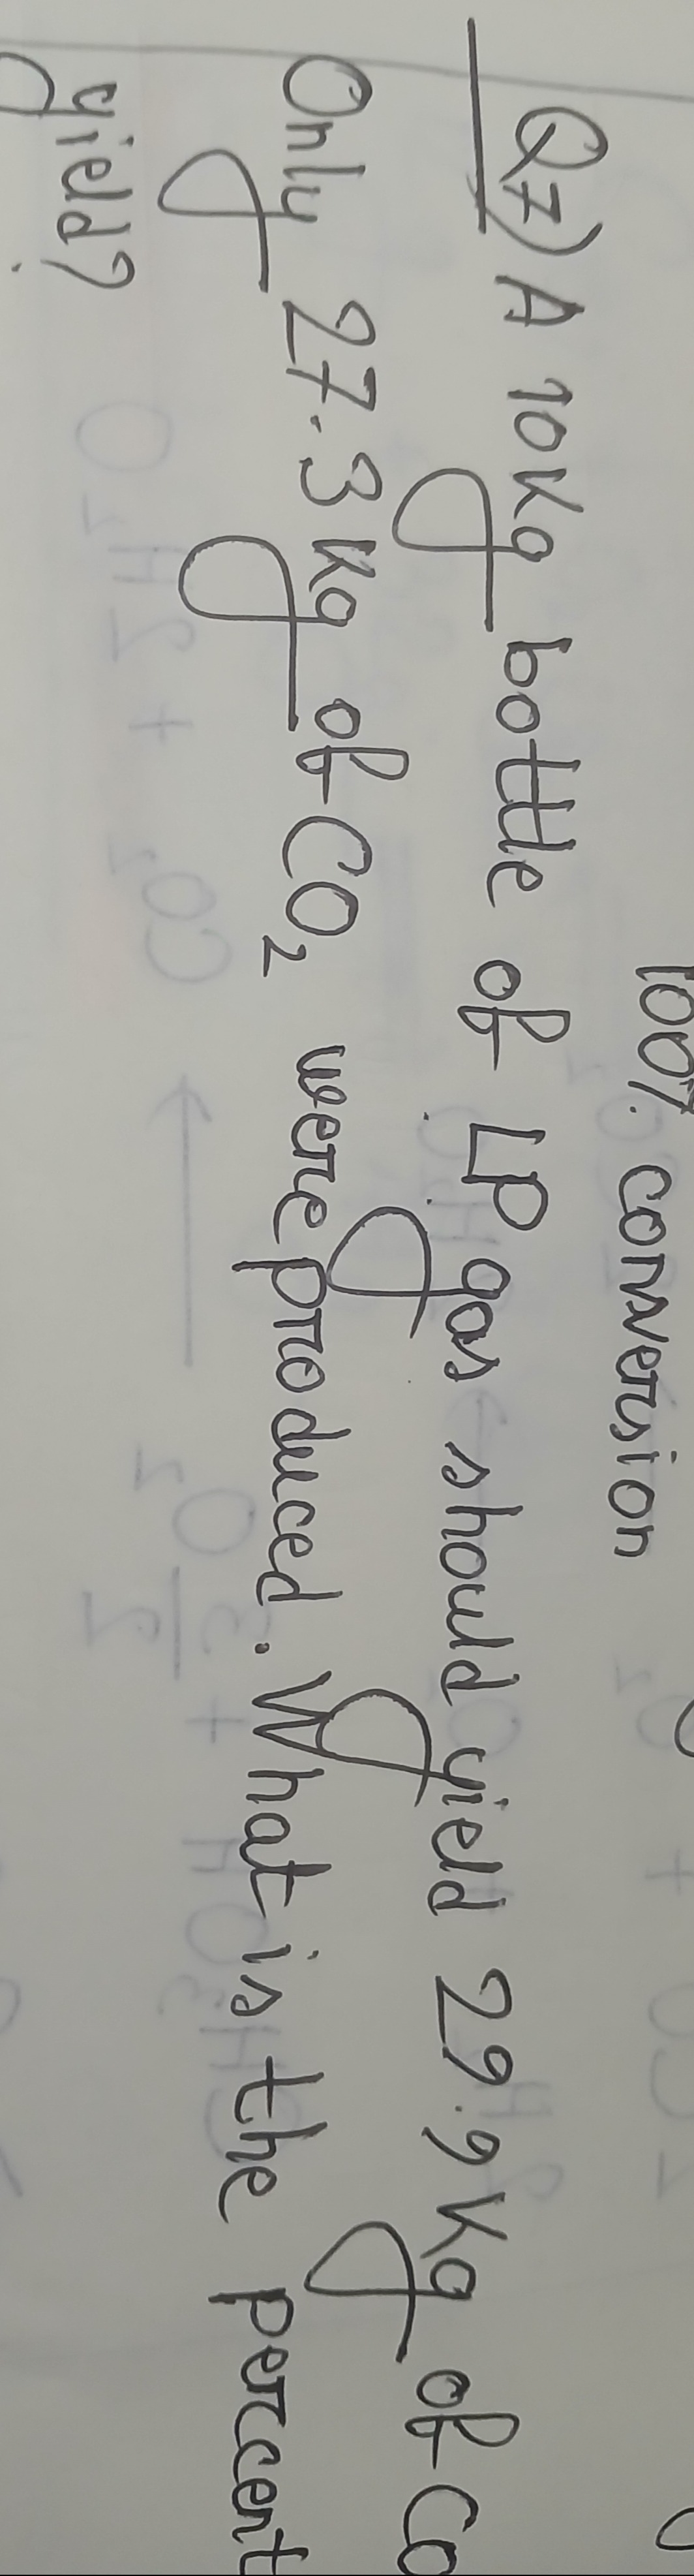 100% conversion
Q7) A 10Kg bottle of LP gas should yield 29.9 Kg of Co
Only 27.3 Kg of CO₂ were produced. What is the percent
yield?